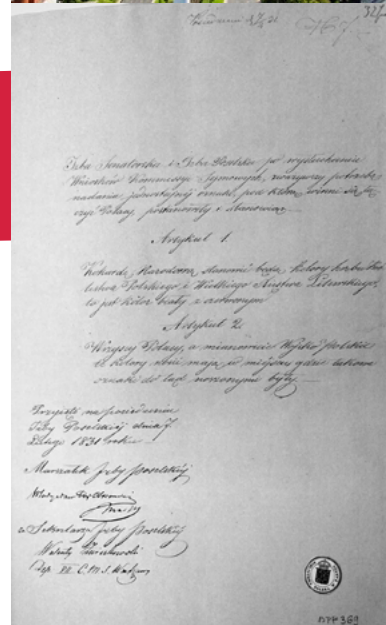 Izba Senatorska i Izba Poselska po wysłuchaniu
Wniosków Kommissyi Seymowych, zważywszy potrzebę
nadania jednostayney oznaki, pod którą winni się łą-
czyć Polacy, postanowiły i stanowią
Artykuł 1.
Kokardę Narodową stanowić będą kolory herbu Kró-
lestwa Polskiego i Wielkiego Xięstwa Litewskiego,
to jest kolor biały z czerwonym
Artykuł 2.
Wszyscy Polacy, a mianowicie Wojsko Polskie
te kolory nosić mają w miejscu gdzie takowe
oznaki do tąd noszonymi były
Przyjęto na posiedzeniu
Izby Poselskiej dnia 7
Lutego 1831 roku
Marszałek Izby Poselskiej
Władysław
Sekretarz Izby Poselskiej
Walenty Zwierkowski